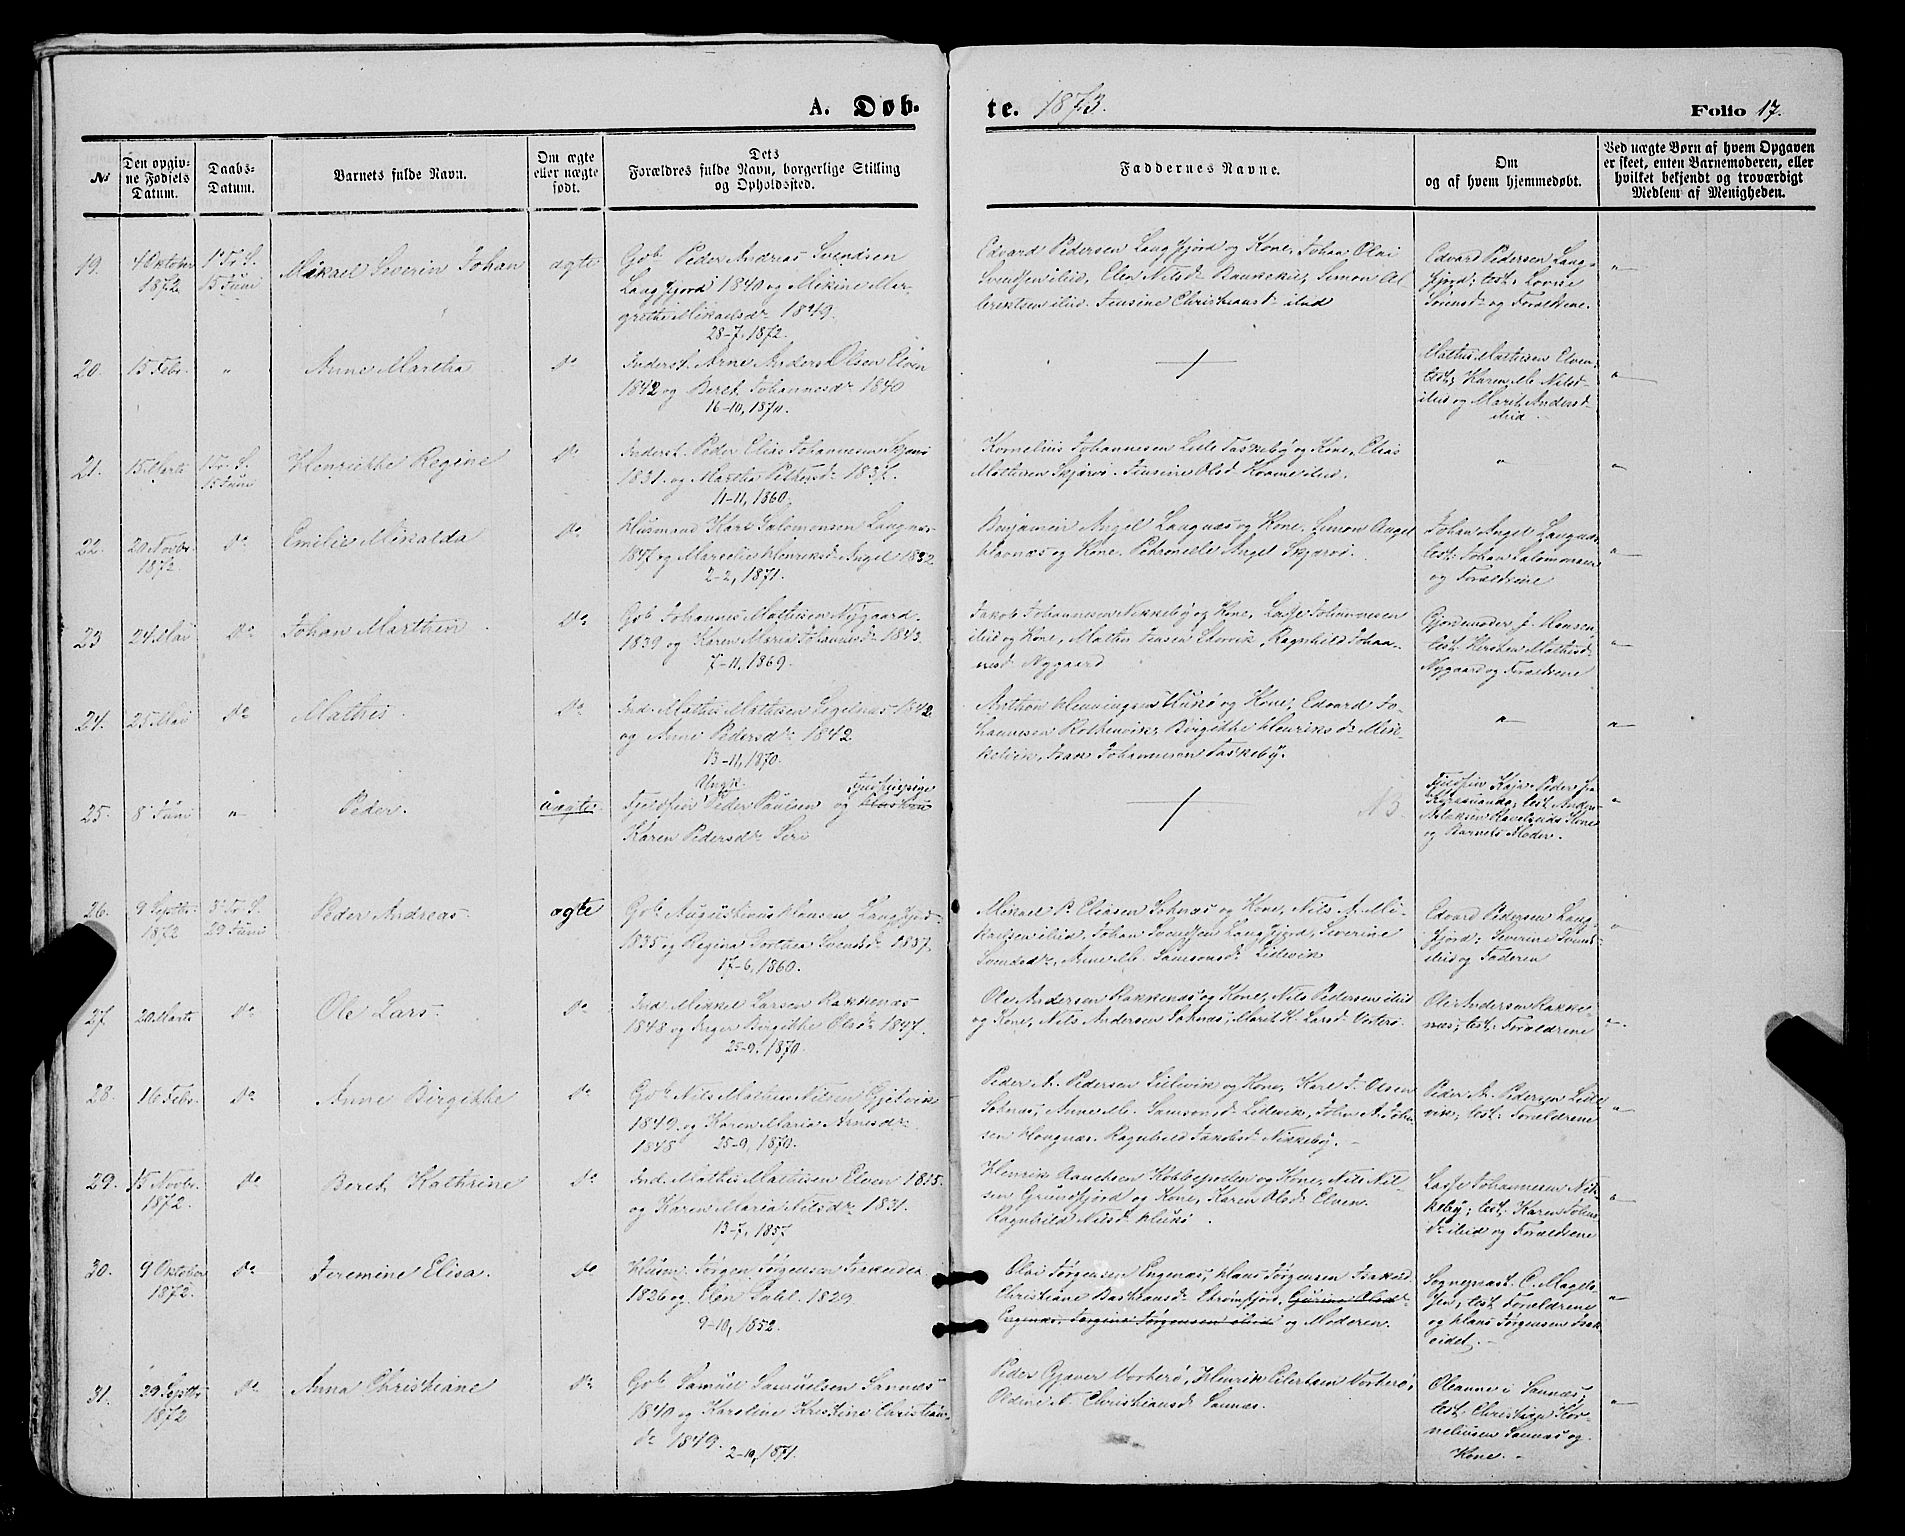 A. Døb-
te. 1873.
Folio 17.
No
Den opgiv-
ne Fødsels
Datum.
Daabs-
Datum.
Barnets fulde Navn.
Om ægte
eller uægte
født.
Dets
Forældres fulde Navn, borgerlige Stilling
og Opholdssted.
Faddernes Navne.
Om
og af hvem hjemmedøbt.
Ved uægte Børn af hvem Opgaven
er skeet, enten Barnemoderen, eller
hvilket bekjendt og troværdigt
Medlem af Menigheden.
19.
4 Oktober
1872
1 Tr. S.
15 Juni
Mikael Severin Johan
ægte
Gb. Peder Andreas Svendsen
Langfjord 1840 og Mekine Mar-
grethe Mikaelsdr 1849.
28-7, 1872.
Edvard Pedersen Langfjord og Kone, Johan Olai
Svendsen ibid, Elen Nilsd. Simon Al-
brigtsen ibid. Jensine Christiansd. ibid
Edvard Pedersen Lang-
fjord; test. Lovise
og Forældrene.
20.
15 Febr.
"
Anne Martha
Do
Inderst. Arne Anders Olsen Elven
1842 og Beret Johannesdr 1840
16-10, 1870.
Mathis Mathisen Elven
test. Karen M. Nilsd.
ibid og Marit Andersd.
ibid
"
21.
15 Marts
1 Tr. S.
15 Juni
Henrikke Regine
Do
Inderst. Peder Elias Johannesen Skjervø
1831. og Martha Pethersd. 1837.
11-11, 1860.
Kornelius Johannesen Lille Taskeby og Kone, Elias
Mathisen Skjervø. Jensine Olsd. ibid.
"
"
22.
20 Novbr.
1872
Do
Emilie Mikalda
Do
Husmand Karl Salomonsen Langnæs
1847 og Henriksd. Angel 1832
2-2, 1871.
Benjamin Angel Langnæs og Kone, Simon Angel
Havnæs og Kone, Petronelle Angel Skjervø.
Johan Angel Langnæs
test. Johan Salomonsen
og Forældrene
"
23
24 Mai
Do
Johan Marthin
Do
Gb. Johannes Mathisen Nygaard
1839 og Karen Maria Johansd. 1843.
7-11, 1869.
Jakob Johannesen Nikkeby og Kone, Lasse Johannesen
ibid og Kone, Mathis Jensen Ragnhild Johan-
nesd. Nygaard
Gjordemoder J. Hansen,
test. Kersten Mathisd.
Nygaard og Forældrene
"
24.
25 Mai
Do
Mathis.
Do
Ind. Mathis Mathisen Segelnæs 1842
og Anne Pedersdr 1842
13-11, 1870.
Anthon Henningsen Hukø og Kone, Edvard Jo-
hannesen Rothenvik, Birgithe Henriksd. Mik-
kelvik, Isak Johannesen Taskeby.
"
"
25.
8 Juni
"
Peder.
uægte
Ungk.
Fjeldfin Peder Paulsen og
Karen Pedersdr Siri
NB
test. Anders
Kone
og Barnets Moder.
"
26.
9 Septbr.
1872
3 Tr. S.
29 Juni
Peder Andreas.
ægte
Gb. Augustinus Hansen Langfjord
1835 og Regina Dorthea Svendsd. 1837.
17-6, 1860.
Mikael P. Eliasen Soknæs og Kone, Nils A. Mi-
kaelsen ibid, Johan Svendsen Langfjord, Severine
Svendsdr, Anne M. Samsonsd. Lidevik
Edvard Pedersen Lang-
fjord; Severine Svends-
ibid og Faderen
"
27.
20 Marts
Do
Ole Lars.
Do
Ind. Mikkel Larsen Rakkenæs
1848 og Inger Birgithe Olsdr 1847.
25-9, 1870.
Ole Andersen Rakkenæs og Kone, Nils Pedersen ibid
og Kone, Nils Andersen Soknæs, Marit K. Larsd. Vorterø.
Ole Andersen Rakke-
næs; test. Forældrene
"
28.
16 Febr.
Do
Anne Birgithe
Do
Gb. Nils Mathis Nilsen Gjelvik
1849. og Karen Maria Arnesdr
1848 25-9, 1870.
Peder A. Pedersen Lidevik og Kone, Karl J. Olsen
Soknæs, Anne M. Samsonsd. Lidevik, John A. John-
sen Haugnæs. Ragnhild Jakobsd. Nikkeby.
Peder A. Pedersen Lide-
vik; test. Forældrene
"
29.
15 Novbr.
1872.
Do
Beret Kathrine
Do
Ind. Mathis Mathisen Elven 1835.
og Karen Maria Nilsdr 1831.
13-7, 1857
Henrik og Kone, Nils Nil-
sen Grundfjord og Kone, Karen Olsd. Elven.
Ragnhild Nilsd. Hukø.
Lasse Johannesen Nik-
keby; test. Karen Johns-
dr ibid og Forældrene
"
30.
9 Oktober
1872.
Do
Jeremine Elisa.
Do
Husm. Jørgen Jørgensen Isakeidet
1826 og Elen Dahl. 1829.
9-10, 1852.
Olai Jørgensen Engnæs, Hans Jørgensen Isakeid.
Christiane Bastiansd. Strømfjord, Gurine Olsdr
Engnæs, Jørgine Jørgensen ibid og Moderen.
Sognepræst O. Magels-
sen, test. Forældrene
og Hans Jørgensen Isak-
eidet.
"
31.
29 Septbr.
1872
Do
Anna Christiane
Do
Gb. Samuel Samuelsen Sannæs
1840 og Karoline Kristine Christian-
dr 1849. 2-10, 1871.
Peder Gjæver Vorterø, Henrik Eilertsen Vorterø,
Oldine A. Christiansd. Sannæs.
Oleanne i Sannæs;
test. Christian Kor-
neliusen Sannæs og
Kone.
"